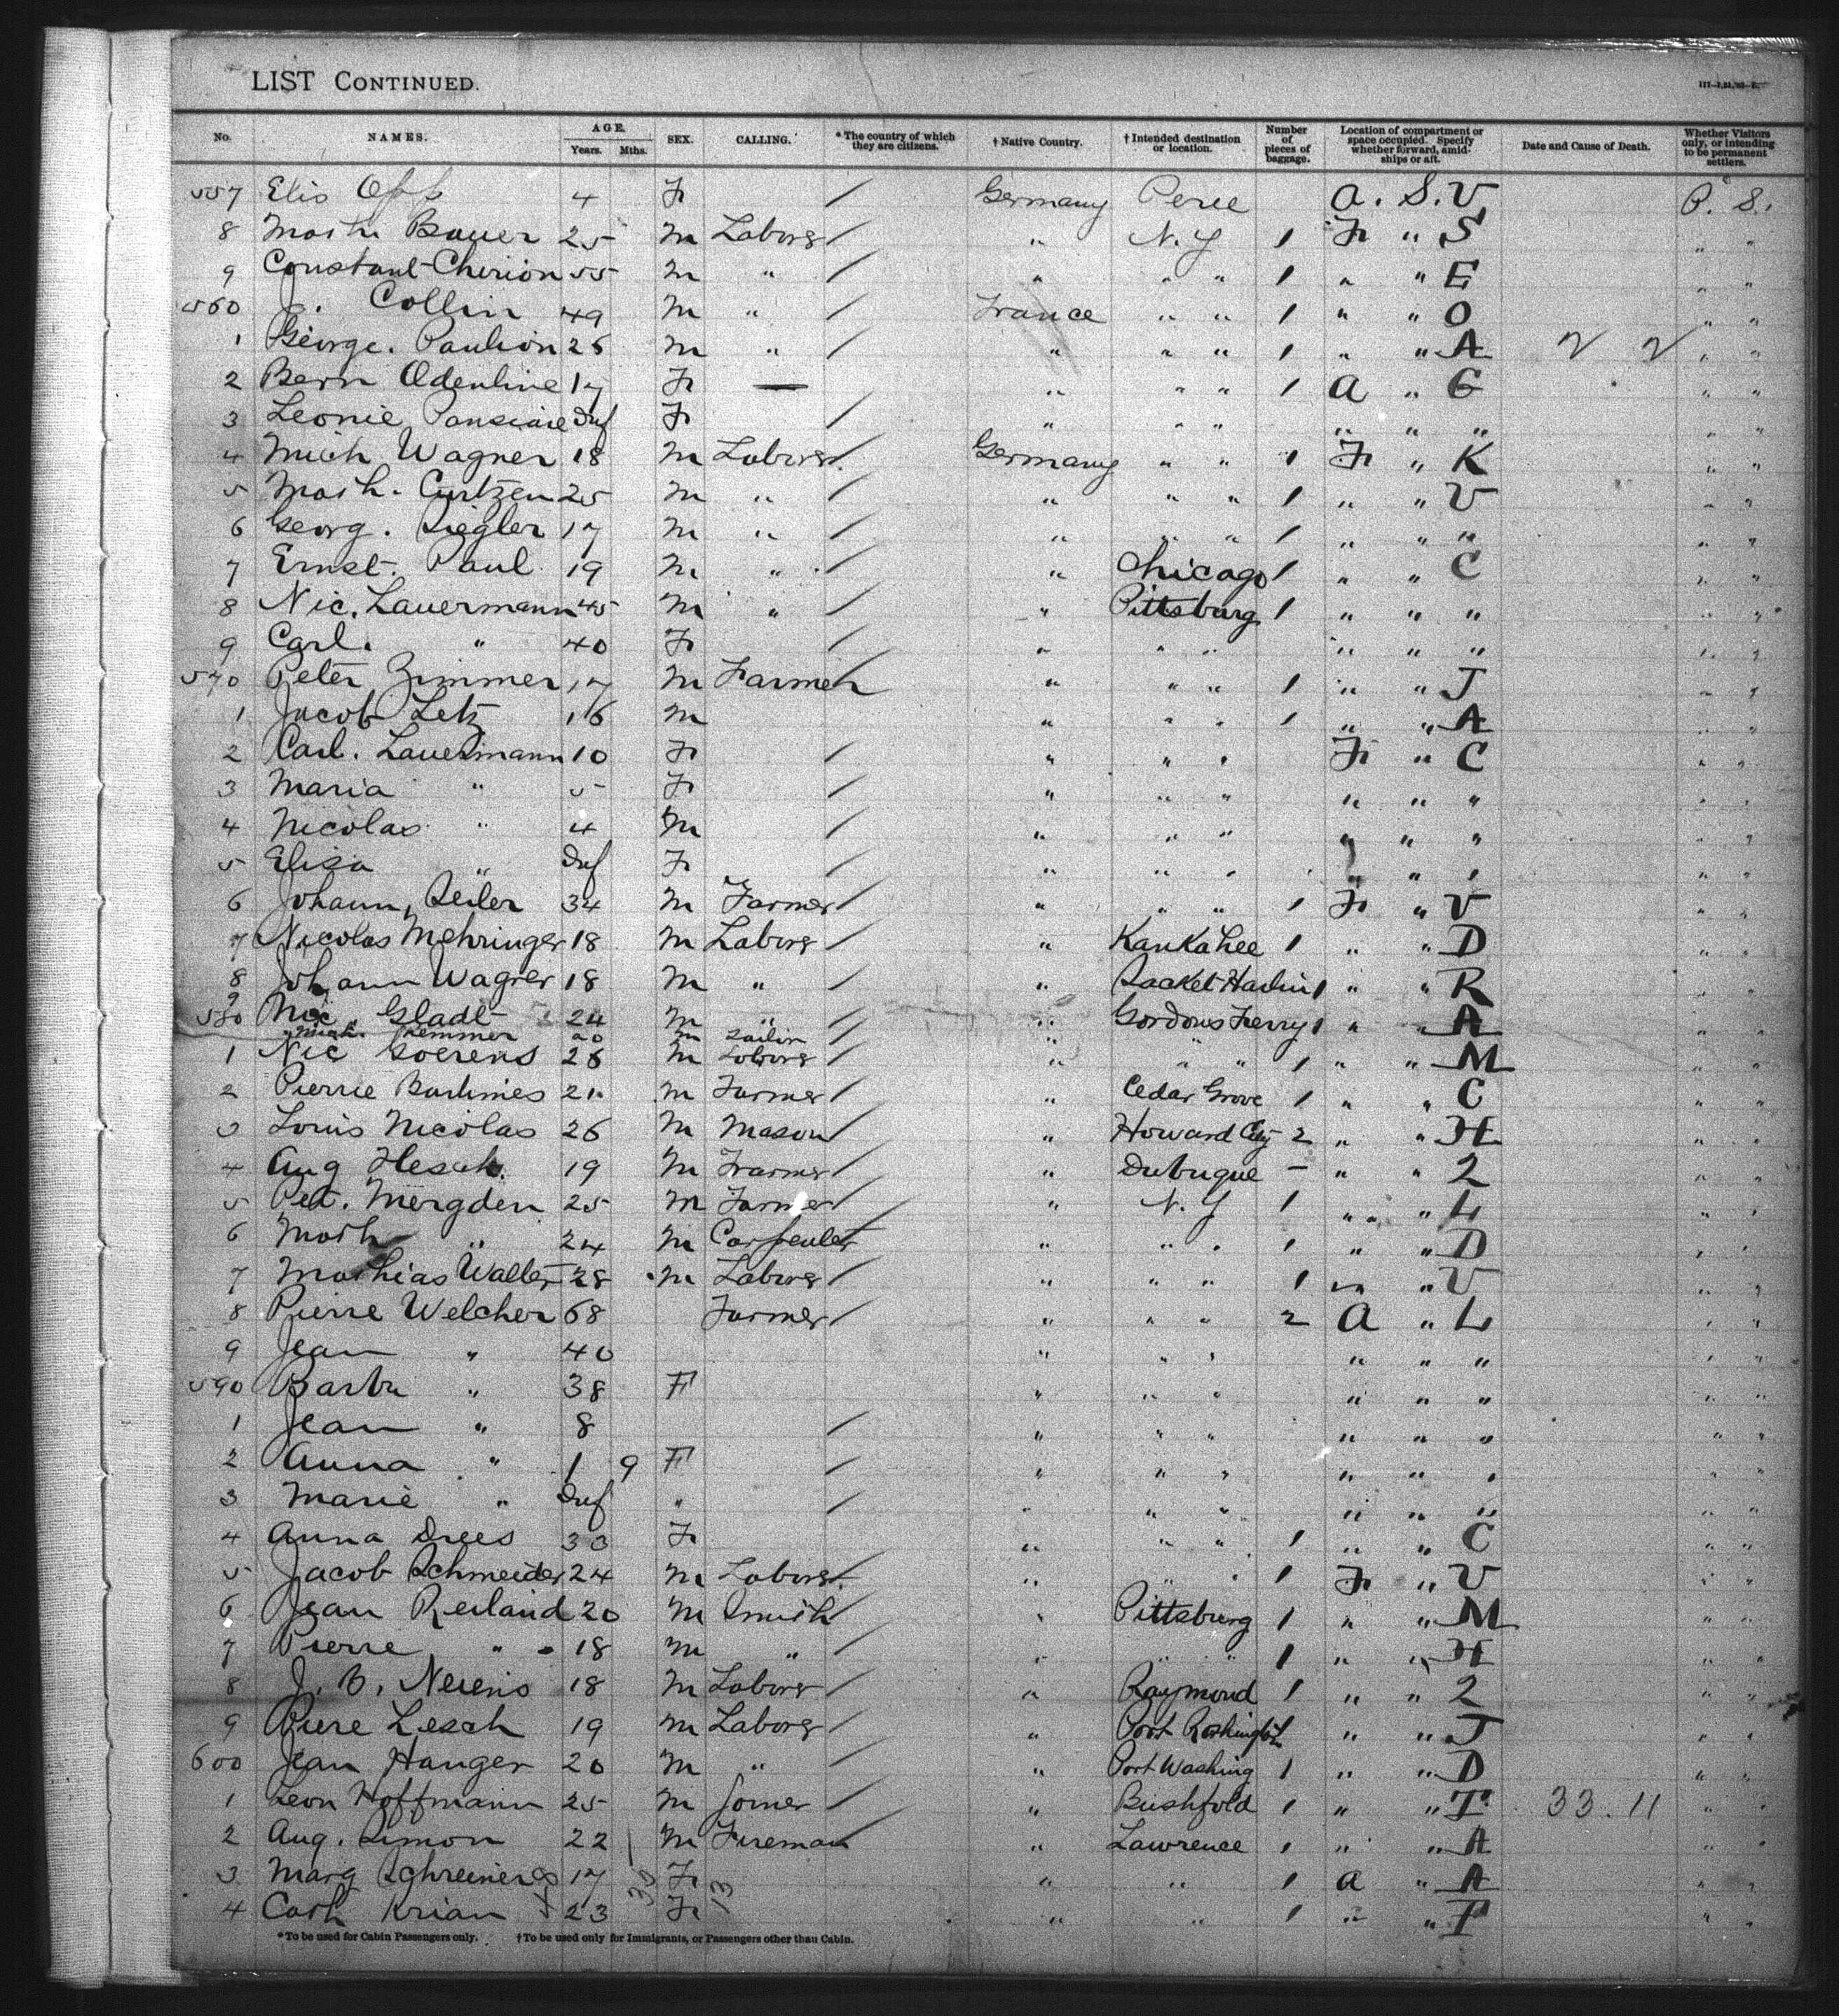 LIST CONTINUED.
No. NAMES. AGE. Years. Mths. SEX. CALLING. * The country of which they are citizens. † Native Country. † Intended destination or location. Number of pieces of baggage. Location of compartment or space occupied. Specify whether forward, amidships or aft. Date and Cause of Death. Whether Visitors only, or intending to be permanent settlers.
557 Elis Opp 4 F / Germany a. S. V P. S.
8 Math. Bauer 25 M Laborer / " N. Y 1 F " S " "
9 Constant Cherion 55 M " / " " " 1 " " E " "
560 J. Collin 49 M " / France " " 1 " " O " "
1 George. Paulion 26 M " / " " " 1 " " A " "
2 Bern 17 F — " " " 1 a " G " "
3 Leonie Inf F / " " " " " " " "
4 Mich Wagner 18 M Laborer / Germany " " 1 F " K " "
5 Math. Curtzen 25 M " / " " " 1 " " V " "
6 Georg. Ziegler 17 M " / " " " 1 " " " " "
7 Ernst. Paul 19 M " / " Chicago 1 " " C " "
8 Nic. Lauermann 45 M " / " Pittsburg 1 " " " " "
9 Carl. " 40 F / " " " " " " " "
570 Peter Zimmer 17 M Farmer " " " 1 " " J " "
1 Jacob Letz 16 M " " " 1 " " A " "
2 Carl. Lauermann 10 F / " " " F " C " "
3 Maria " 5 F / " " " " " " " "
4 Nicolas " 4 M / " " " " " " " "
5 Elisa " Inf F / " " " " " " "
6 Johann Seiler 34 M Farmer / " " " 1 F " V " "
7 Nicolas Mehringer 18 M Laborer / " Kankahee 1 " " D " "
8 Johann Wagner 18 M " / " 1 " " R " "
9 Nic. Gladt 24 M " / " Gordons Ferry 1 " " A " "
580 Mich. Kemmer 20 M Sailor "
1 Nic Goerens 26 M Laborer / " " " 1 " " M " "
2 Pierrie Bartimes 21 M Farmer / " Cedar Grove 1 " " C " "
3 Louis Nicolas 26 M Mason / " Howard City 2 " " H " "
4 Aug Hesch 19 M Farmer / " Dubuque — " " 2 " "
5 Pet. Mergden 25 M Farmer / " N. Y 1 " " L " "
6 Math " 24 M Carpenter / " " " 1 " " D " "
7 Mathias Walter 28 M Laborer / " " " 1 " " V " "
8 Pierre Welcher 68 Farmer / " " " 2 a " L " "
9 Jean " 40 " " " " " " " "
590 Barba " 38 F " " " " " " " "
1 Jean " 8 / " " " " " " " "
2 Anna " 1 9 F / " " " " " " " "
3 Marie " Inf " / " " " " " " " "
4 Anna Drees 33 F " " " 1 " " C " "
5 Jacob Schmeider 24 M Laborer / " " " 1 F " V " "
6 Jean Reiland 20 M Smith / " Pittsburg 1 " " M " "
7 Pierre " 18 M " / " " " 1 " " H " "
8 J. B. Neiens 18 M Laborer / " Raymond 1 " " 2 " "
9 Piere Lesch 19 M Laborer / " Port 1 " " J " "
600 Jean Hanger 20 M " / " Port Washing 1 " " D " "
1 Leon Hoffmann 25 M Joiner / " 1 " " T 33. 11 " "
2 Aug. Simon 22 M Fireman / " Lawrence 1 " " A " "
3 Marg 17 F " " 1 a " A " "
4 Cath Krian 23 F " " 1 " " T " "
*To be used for Cabin Passengers only. †To be used only for Immigrants, or Passengers other than Cabin.